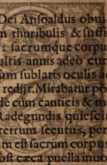 Dei Ansoaldus obui
m thuribulis & suffi
: sacrumque corpu
ultis annis adeo eun
um sublatis oculis a
redijt. Mirabatur po
de cum canticis & m
Radegundis quiesce
terrum secutus, per
m est sacrum corp
ost cæca puella in